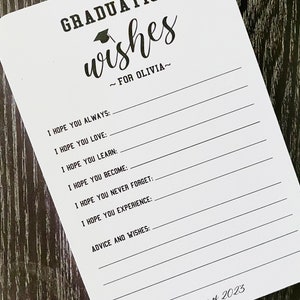 GRADUATION
wishes
~ FOR OLIVIA ~
I HOPE YOU ALWAYS:
I HOPE YOU LOVE:
I HOPE YOU LEARN:
I HOPE YOU BECOME:
I HOPE YOU NEVER FORGET:
I HOPE YOU EXPERIENCE:
ADVICE AND WISHES:
2023